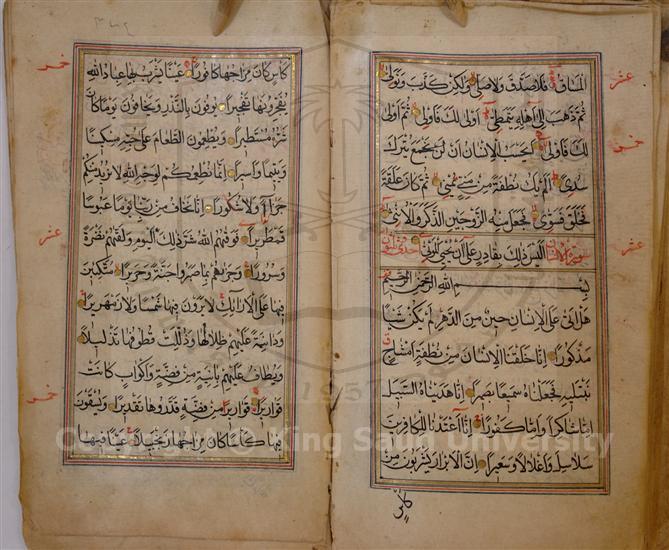 المساق فلا صدق ولا صلى ولكن كذب وتولى
ثم ذهب الى اهله يتمطى اولى لك فاولى ثم اولى
لك فاولى ايحسب الانسان ان لن نجمع يترك
سدى الم يك نطفة من مني يمنى ثم كان علقة
فخلق فسوى فجعل منه الزوجين الذكر والانثى
سورة الانسان اليس ذلك بقادر على ان يحيي الموتى
بسم الله الرحمن الرحيم
هل اتى على الانسان حين من الدهر لم يكن شيئا
مذكورا انا خلقنا الانسان من نطفة امشاج
نبتليه فجعلناه سميعا بصيرا انا هديناه السبيل
اما شاكرا واما كفورا انا اعتدنا للكافرين
سلاسل واغلالا وسعيرا ان الابرار يشربون من
كأس
عشر
عشر
كأس كان مزاجها كافورا عينا يشرب بها عباد الله
يفجرونها تفجيرا يوفون بالنذر ويخافون يوما كان
شره مستطيرا ويطعمون الطعام على حبه مسكينا
ويتيما واسيرا انما نطعمكم لوجه الله لا نريد منكم
جزاء ولا شكورا انا نخاف من ربنا يوما عبوسا
قمطريرا فوقيهم الله شر ذلك اليوم ولقيهم نضرة
وسرورا وجزاهم بما صبروا جنة وحريرا متكئين
فيها على الارائك لا يرون فيها شمسا ولا زمهريرا
ودانية عليهم ظلالها وذللت قطوفها تذليلا
ويطاف عليهم بانية من فضة واكواب كانت
قواريرا قواريرا من فضة قدروها تقديرا ويسقون
فيها كاسا كان مزاجها زنجبيلا عينا فيها
عشر
1957
Copyright © King Saud University